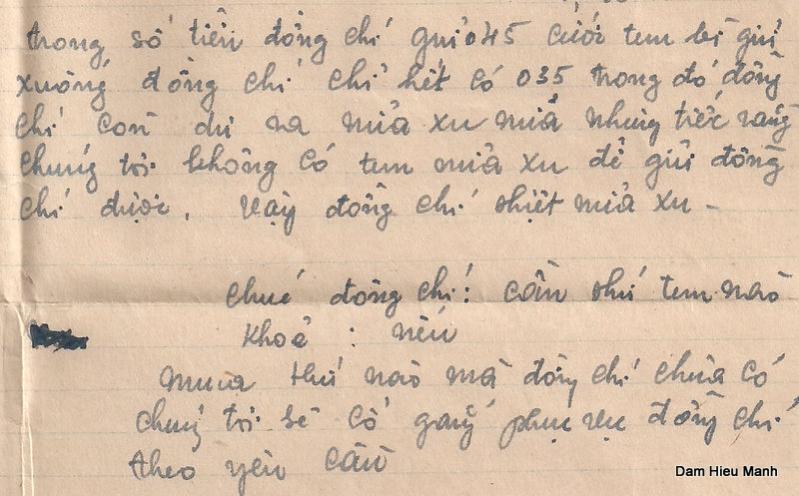 trong số tiền đồng chí gửi 045 cước tem bì gửi
xuống đồng chí chỉ hết có 035 trong đó đồng
chí còn dư ra nửa xu nữa nhưng tiếc rằng
chúng tôi không có tem nửa xu để gửi đồng
chí được. Vậy đồng chí thiệt nửa xu -
Chúc đồng chí:
Khoẻ :
cần thứ tem nào
nếu
mua thứ nào mà đồng chí chưa có
chúng tôi sẽ cố gắng phục vụ đồng chí
theo yêu cầu
Dam Hieu Manh